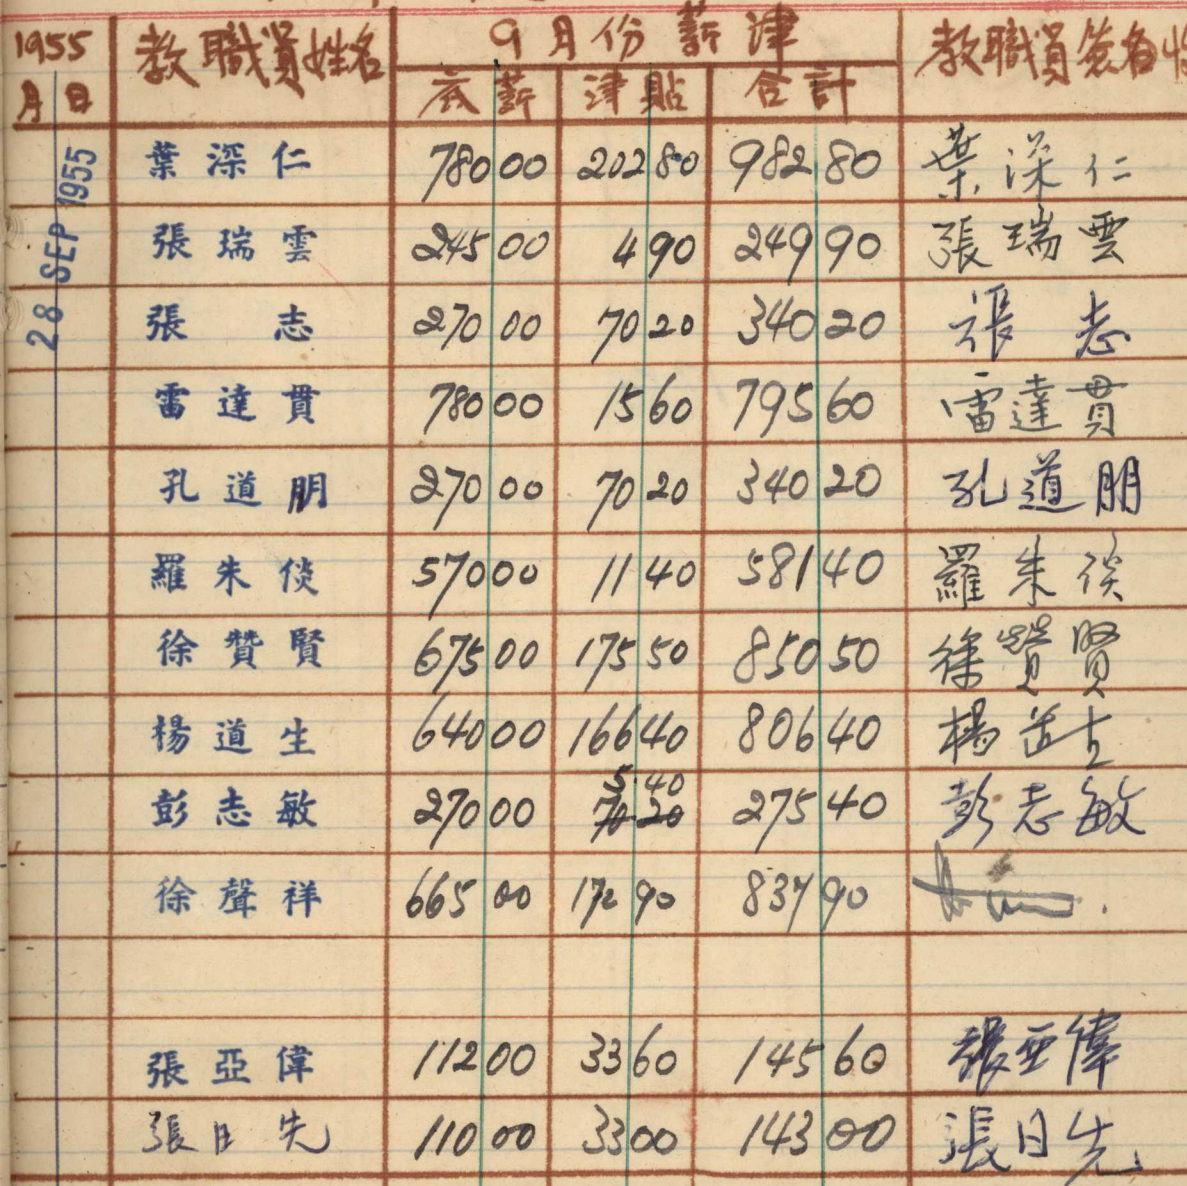 1955 教職員姓名 9月份薪津 教職員簽名
月 日 底薪 津貼 合計
28 SEP 1955
葉深仁 780 00 202 80 982 80 葉深仁
張瑞雲 245 00 4 90 249 90 張瑞雲
張志 270 00 70 20 340 20 張志
雷達貫 780 00 15 60 795 60 雷達貫
孔道朋 270 00 70 20 340 20 孔道朋
羅朱倓 570 00 11 40 581 40 羅朱倓
徐贊賢 675 00 175 50 850 50 徐贊賢
楊道生 640 00 166 40 806 40 楊道生
5.40
彭志敏 270 00 70 20 275 40 彭志敏
徐聲祥 665 00 172 90 837 90
張亞偉 112 00 33 60 145 60 張亞偉
張日先 110 00 33 00 143 00 張日先